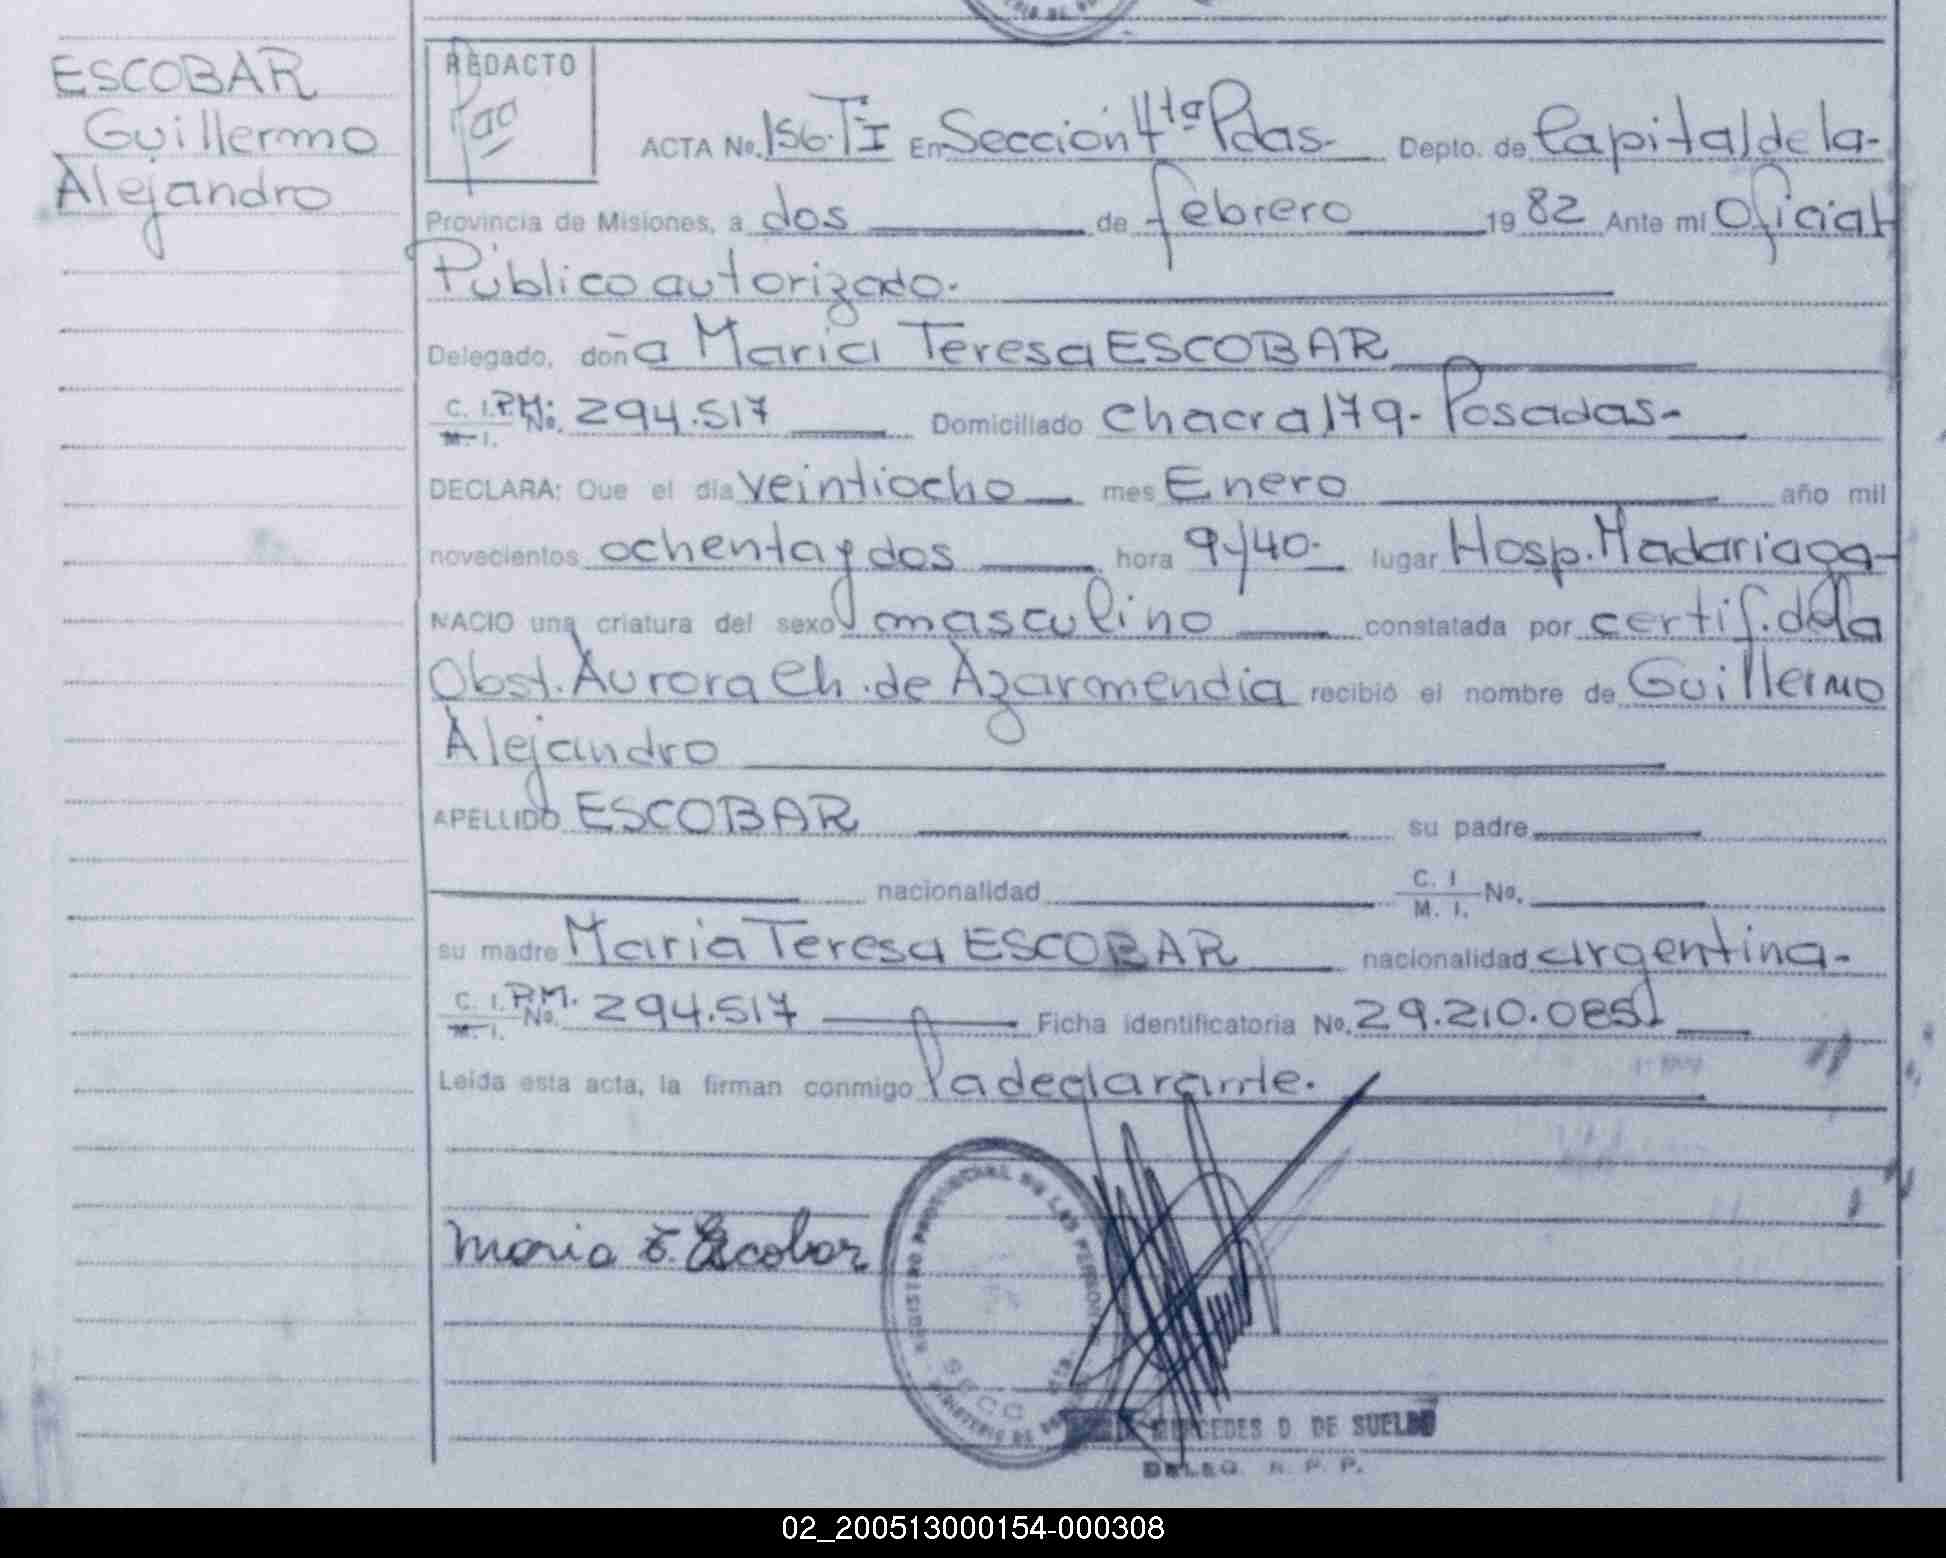 ESCOBAR
Guillermo
Alejandro
REDACTO
ACTA No. 156. TI En Sección 4ta Pdas.- Depto. de Capital de la-
Provincia de Misiones, a dos de febrero 19 82 Ante mi Oficial
Público autorizado.
Delegado, doña Maria Teresa ESCOBAR
C. I. P.M. No. 294.517 Domiciliado chacra 179.- Posadas-
M. I.
DECLARA: Que el día veintiocho mes Enero año mil
novecientos ochenta y dos hora 9y40. lugar Hosp. Madariaga-
NACIO una criatura del sexo masculino constatada por certif. de la
Obst. Aurora Ch. de Azarmendia recibió el nombre de Guillermo
Alejandro
APELLIDO ESCOBAR su padre
nacionalidad C. I. No.
M. I.
su madre Maria Teresa ESCOBAR nacionalidad argentina.-
C. I. P.M. No. 294.517 Ficha identificatoria No. 29.210.085
M. I.
Leída esta acta, la firman conmigo la declarante.
Maria T. Escobar
REGISTRO PROVINCIAL DE LAS PERSONAS
SECC. 4ta.
MINISTERIO DE
MERCEDES D DE SUELDO
DELEG. R. P. P.
02_200513000154-000308